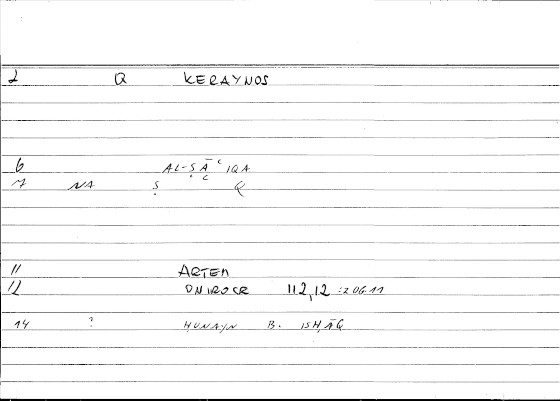 2 Q KERAYNOS
6 AL-ṢĀʿIQA
7 NA Ṣ ʿ Q
11 ARTEM
12 ONIROCR 112,12 :206.11
14 ? ḤUNAYN B. ISḤĀQ